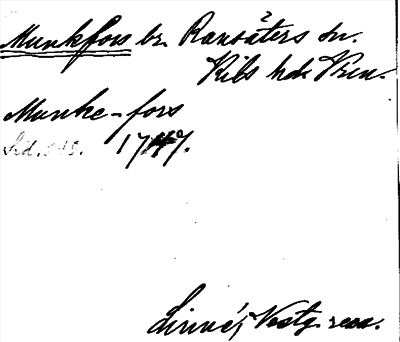 Munkfors br. Ransäters sn.
Kils hds Vrm.
Munke-fors
Sid. 1747.
Linné, Vestg. resa.